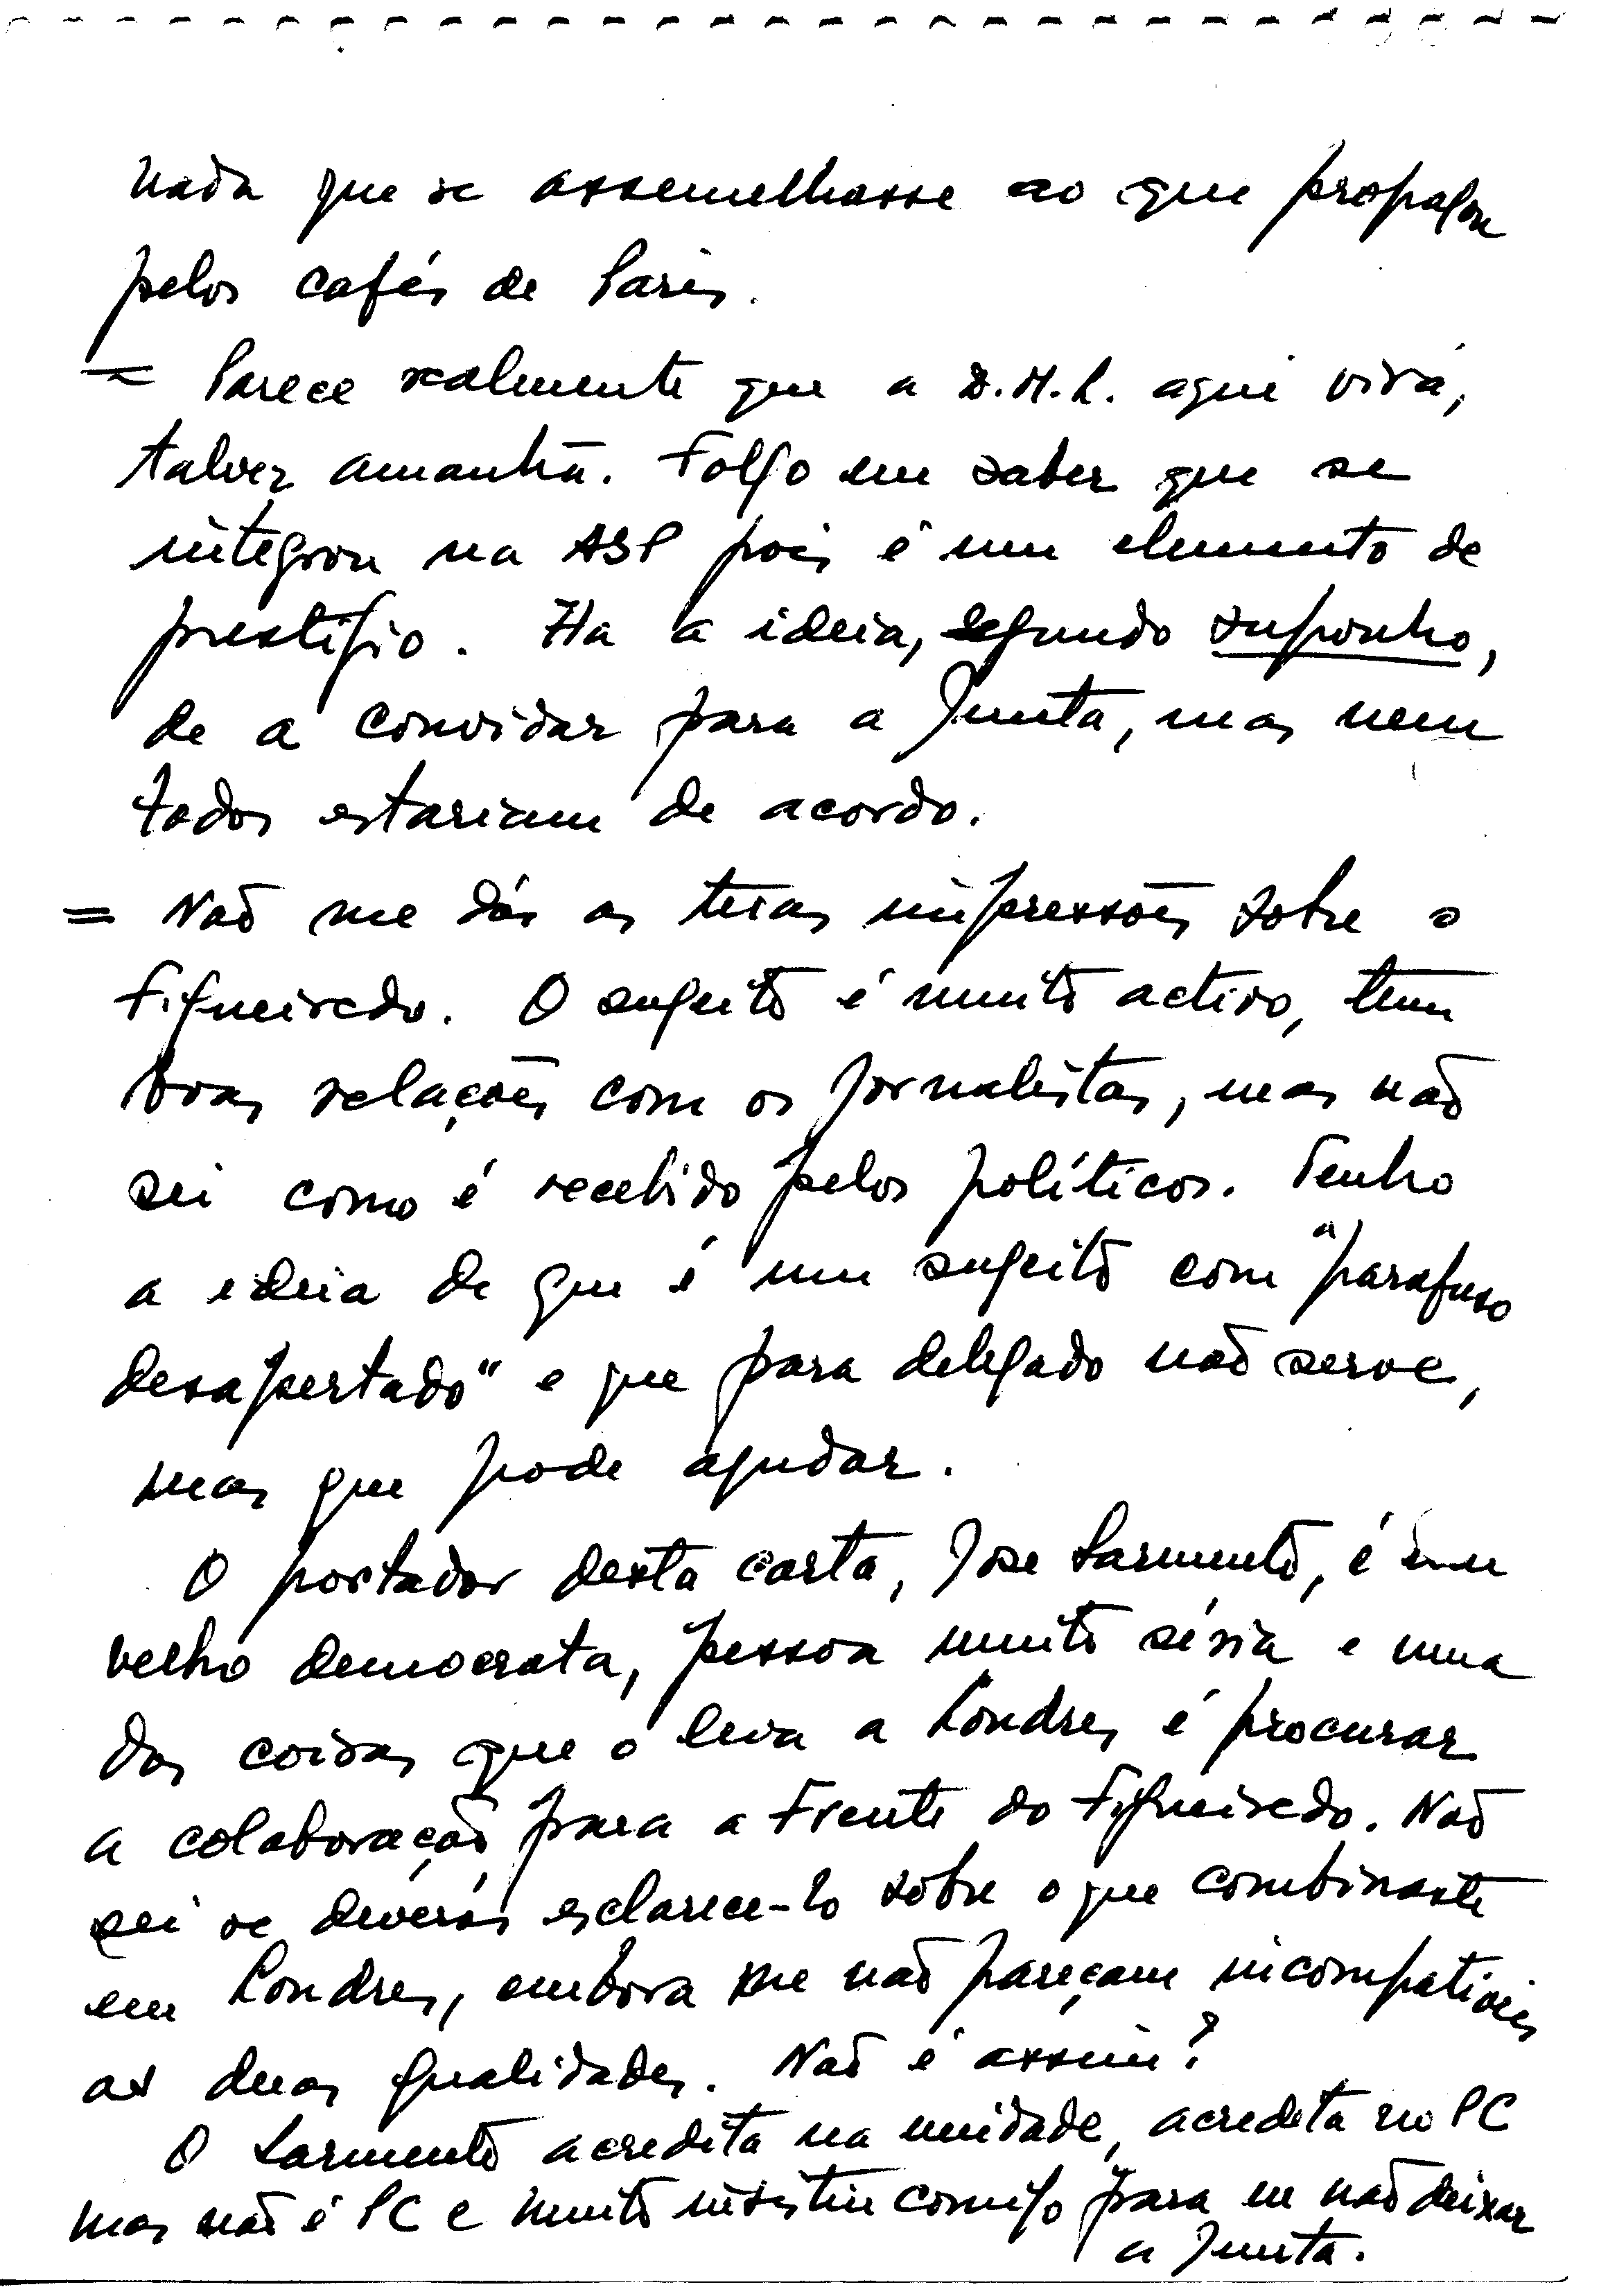 nada que se assemelhasse ao que propalou
pelos cafés de Paris.
= Parece realmente que a D.M.L. aqui virá,
talvez amanhã. Folgo em saber que se
integrou na ASP pois é um elemento de
prestígio. Ha a ideia, segundo suponho,
de a convidar para a Junta, mas nem
todos estariam de acordo.
= Não me dás as tuas impressões sobre o
Figueiredo. O sugeito é muito activo, tem
boas relações com os jornalistas, mas não
sei como é recebido pelos políticos. Tenho
a ideia de que é um sugeito com "parafuso
desapertado" e que para delegado não serve,
mas que pode ajudar.
O portador desta carta, Jose Sarmento, é um
velho democrata, pessoa muito séria e uma
das coisas que o leva a Londres é procurar
a colaboração para a Frente do Figueiredo. Não
sei se deverás esclarece-lo sobre o que combinaste
em Londres, embora me não pareçam incompativeis
as duas qualidades. Não é assim?
O Sarmento acredita na unidade, acredita no PC
mas não é PC e muito insistiu comigo para eu não deixar
a Junta.